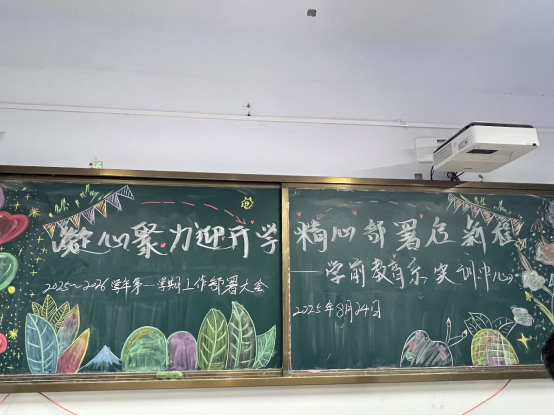 凝心聚力迎开学 精心部署启新程
2025~2026学年第一学期工作部署大会
——学前教育系实训中心
2025年8月24日